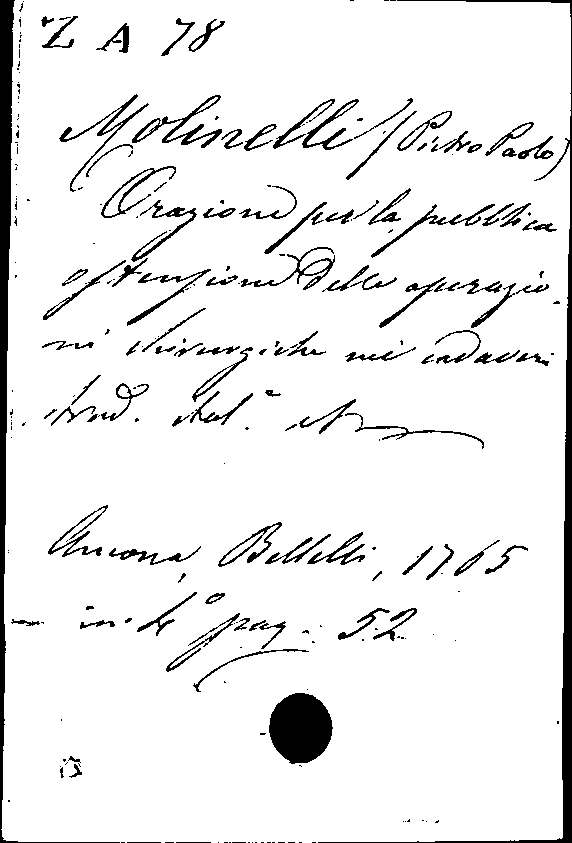 Z A 78
Molinelli (Pietro Paolo)
Orazione per la pubblica
ostensione delle operazio-
ni chirurgiche nei cadaveri
trad. ital.
Ancona, Bellelli, 1765
in-4º pag. 52